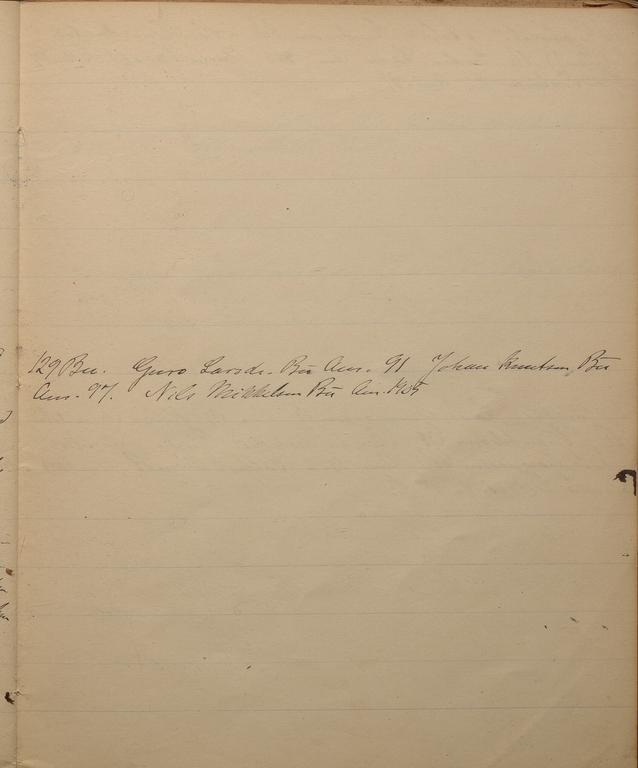 129 Bu. Guro Larsdr. Bu Am. 91 Johan Knutsen Bu
Am. 97. Nils Mikkelsen Bu Am. 1905